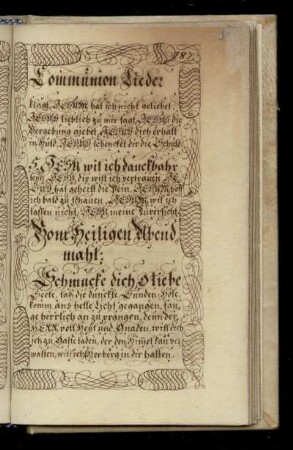 187.
Communion Lieder
klagt, JESUM hab ich nicht geliebet,
JESUS lieblich zu mir sagt, JESUS dir
Vergebung giebet, JESUS dich erhält
in Huld, JESUS schencket dir die Schuld
5. JESU wil ich danckbahr
seyn, JESU, dir will ich vertrauen, JE-
SUS hat geheilt die Pein, JESUM hoff
ich bald zu schauen, JESUM wil ich
lassen nicht, JESU meine Zuversicht.
Vom Heiligen Abend
mahl:
Schmücke dich o liebe
Seele, laß die dunckle Sünden-Höle,
komm ans helle Licht gegangen, fan-
ge herrlich an zu prangen, denn der
HERR voll Heyl und Gnaden, will dich
itzt zu Gaste laden, der den Himel kan ver-
walten, will itzt Herberg in dir halten.